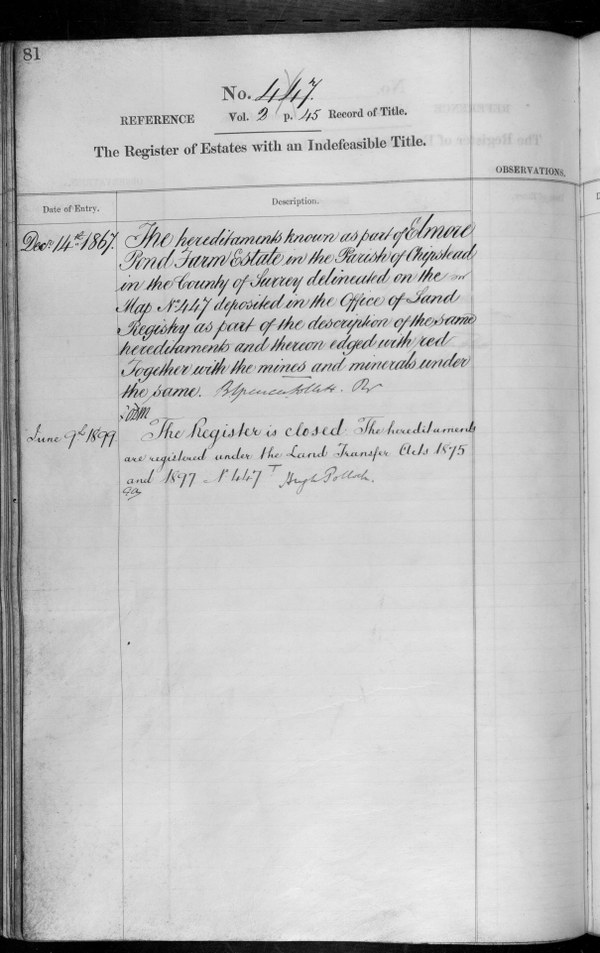 81
No. 447.
REFERENCE Vol. 2 p. 45 Record of Title.
The Register of Estates with an Indefeasible Title.
OBSERVATIONS.
Date of Entry.
Description.
Decr. 14th 1867.
The hereditaments known as part of Elmore
Pond Farm Estate in the Parish of Chipstead
in the County of Surrey delineated on the
Map No 447 deposited in the Office of Land
Registry as part of the description of the same
hereditaments and thereon edged with red
Together with the mines and minerals under
the same.
June 9th 1899
The Register is closed The hereditaments
are registered under the Land Transfer Acts 1875
and 1897 No 447 T Hugh Pollock.